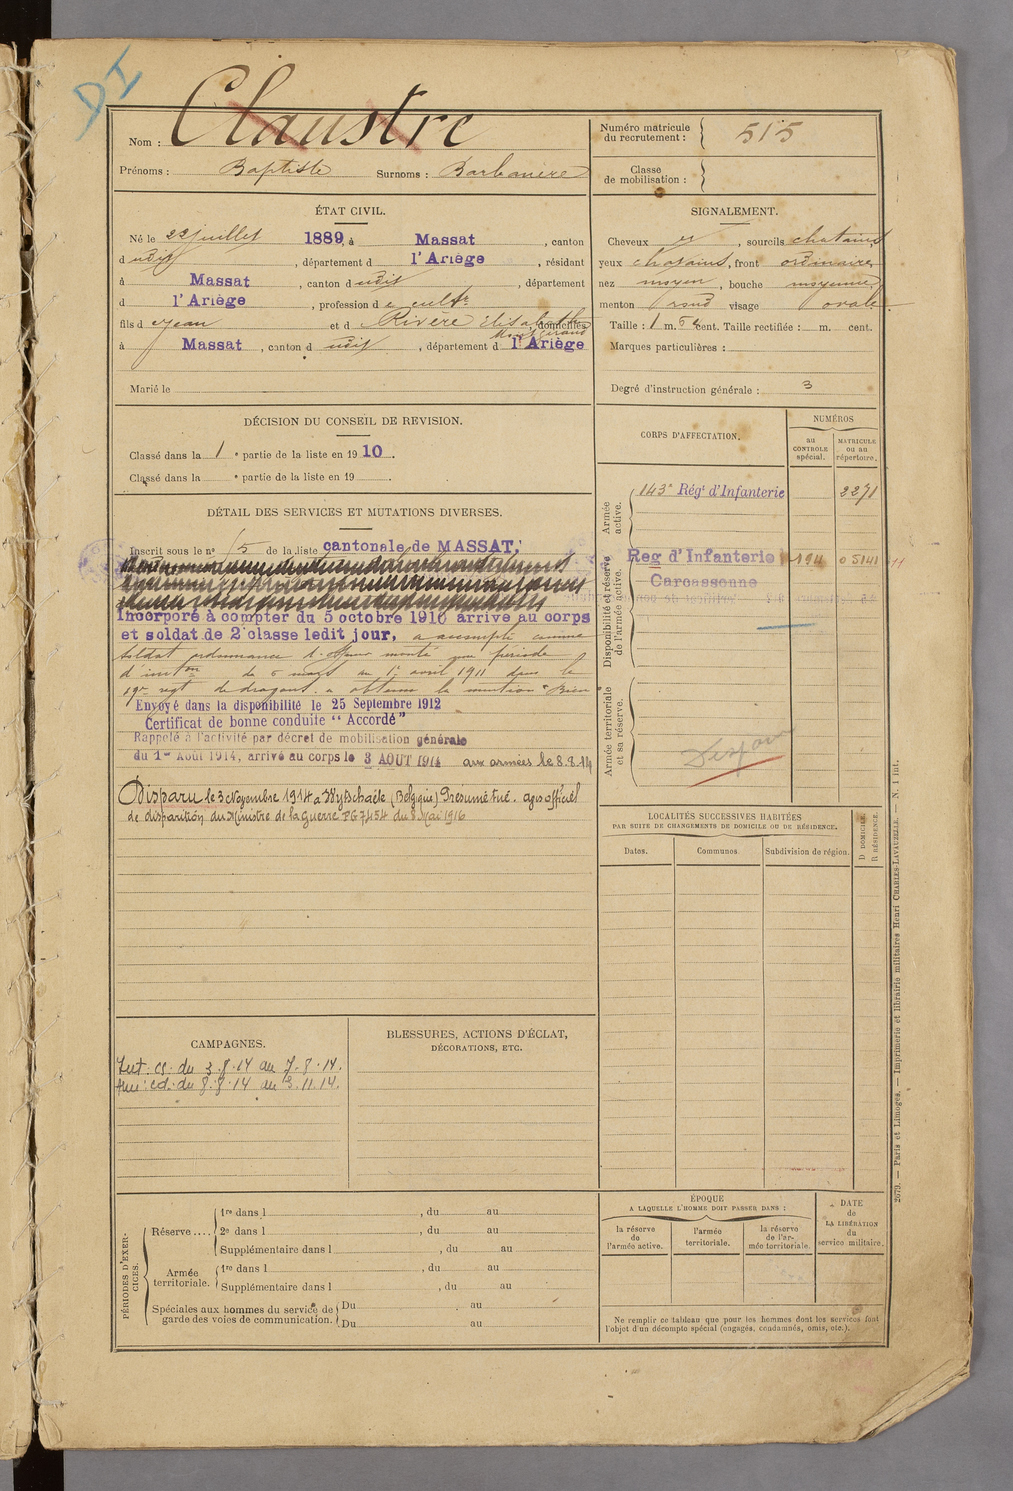 DI
Nom : Claustre
Prénoms : Baptiste Surnoms : Barbanère
Numéro matricule du recrutement : 515
Classe de mobilisation :
ÉTAT CIVIL.
Né le 22 juillet 1889, à Massat, canton
d udit, département d l'Ariège, résidant
à Massat, canton d udit, département
d l'Ariège, profession d e cultr
fils d e Jean et d Rivère Elisabeth domiciliés
à Massat, canton d udit, département d l'Ariège
Marié le
SIGNALEMENT.
Cheveux et, sourcils chatains
yeux chatains, front ordinaire
nez moyen, bouche moyenne
menton rond visage ovale
Taille : 1 m. cent. Taille rectifiée : m. cent.
Marques particulières :
Degré d'instruction générale : 3
DÉCISION DU CONSEIL DE REVISION.
Classé dans la 1 e partie de la liste en 1910.
Classé dans la e partie de la liste en 19 .
DÉTAIL DES SERVICES ET MUTATIONS DIVERSES.
Inscrit sous le n° 15 de la liste cantonale de MASSAT.
Incorporé à compter du 5 octobre 1910 arrivé au corps
et soldat de 2e classe ledit jour, a accompli comme
soldat ordonnance d' monté une période
d' du 5 mars au 1er avril 1911 dans le
19e regt de dragons. a obtenu la mention "Bien"
Envoyé dans la disponibilité le 25 Septembre 1912
Certificat de bonne conduite "Accordé"
Rappelé à l'activité par décret de mobilisation générale
du 1er Août 1914, arrivé au corps le 3 AOUT 1914 aux armées le 8.8.14
Disparu le 3 Novembre 1914 à Wytschaete (Belgique) Présumé tué. avis officiel
de disparition du Ministre de la Guerre PG 7454 du 8 Mai 1916
CORPS D'AFFECTATION.
NUMÉROS
au CONTROLE spécial.
MATRICULE ou au répertoire.
Armée active.
143e Régt d'Infanterie 2271
Disponibilité et réserve de l'armée active.
Reg d'Infanterie 1911 05141
Carcassonne
Armée territoriale et sa réserve.
Disparu
LOCALITÉS SUCCESSIVES HABITÉES
PAR SUITE DE CHANGEMENTS DE DOMICILE OU DE RÉSIDENCE.
Dates. Communes. Subdivision de région.
D DOMICILE.
R RÉSIDENCE.
CAMPAGNES.
Int. cs. du 3.8.14 au 7.8.14.
cd. du 8.8.14 au 3.11.14.
BLESSURES, ACTIONS D'ÉCLAT,
DÉCORATIONS, ETC.
PÉRIODES D'EXERCICES.
Réserve ....
1re dans l , du au
2e dans l , du au
Supplémentaire dans l , du au
Armée territoriale.
1re dans l , du au
Supplémentaire dans l , du au
Spéciales aux hommes du service de garde des voies de communication.
Du au
Du au
ÉPOQUE
A LAQUELLE L'HOMME DOIT PASSER DANS :
la réserve de l'armée active.
l'armée territoriale.
la réserve de l'armée territoriale.
DATE de LA LIBÉRATION du service militaire.
Ne remplir ce tableau que pour les hommes dont les services font
l'objet d'un décompte spécial (engagés, condamnés, omis, etc.).
2679. — Paris et Limoges. — Imprimerie et librairie militaires Henri CHARLES-LAVAUZELLE. — N. 1 int.